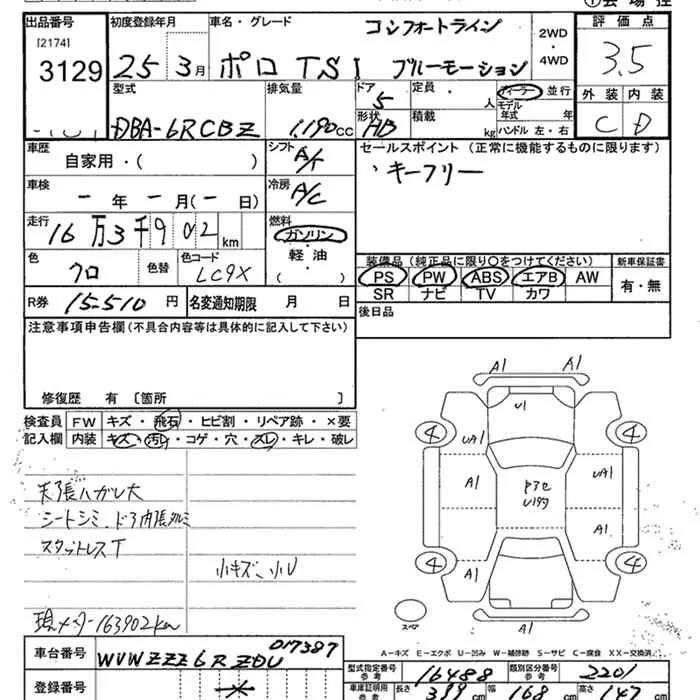 出品番号 初度登録年月 車名・グレード コンフォートライン 2WD・4WD 評価点
[2174]
3129 25 3月 ポロ TSI ブルーモーション 3.5
型式 排気量 ドア 5 定員 人 ディーラー 並行 外装 内装
DBA-6RCBZ 1,190cc 形状 HB 積載 kg モデル年式 年 ハンドル 左・右 C D
車歴 自家用・( ) シフト A/T セールスポイント (正常に機能するものに限ります)
車検 ー年 ー月(ー日) 冷房 A/C キーフリー
走行 16万3千902km 燃料 ガソリン
軽油
( )
色 クロ 色替 色コード LC9X
装備品 (純正品に限り○をつけてください) 新車保証書
PS PW ABS エアB AW 有・無
SR ナビ TV カワ
R券 15510円 名変通知期限 月 日 後日品
注意事項申告欄(不具合内容等は具体的に記入して下さい)
修復歴 有 [箇所 ]
検査員 FW キズ・飛石・ヒビ割・リペア跡・×要
記入欄 内装 キズ・汚レ・コゲ・穴・スレ・キレ・破レ
天張ハガレ大
シートシミ、ドア内張タルミ
スタットレスT
小キズ、小U
現メーター163902km
A1 A1
U1
4 4
UA1 UA1
A1 A1
4 4
A1 A1
A1
スペア
A=キズ E=エクボ U=凹み W=補修跡 S=サビ C=腐食 XX=交換済
車台番号 WVWZZZ6RZDU 017387
登録番号
型式指定番号 参考 16488 類別区分番号 参考 2201
車庫証明用 参考 長さ 399cm 幅 168cm 高さ 147cm